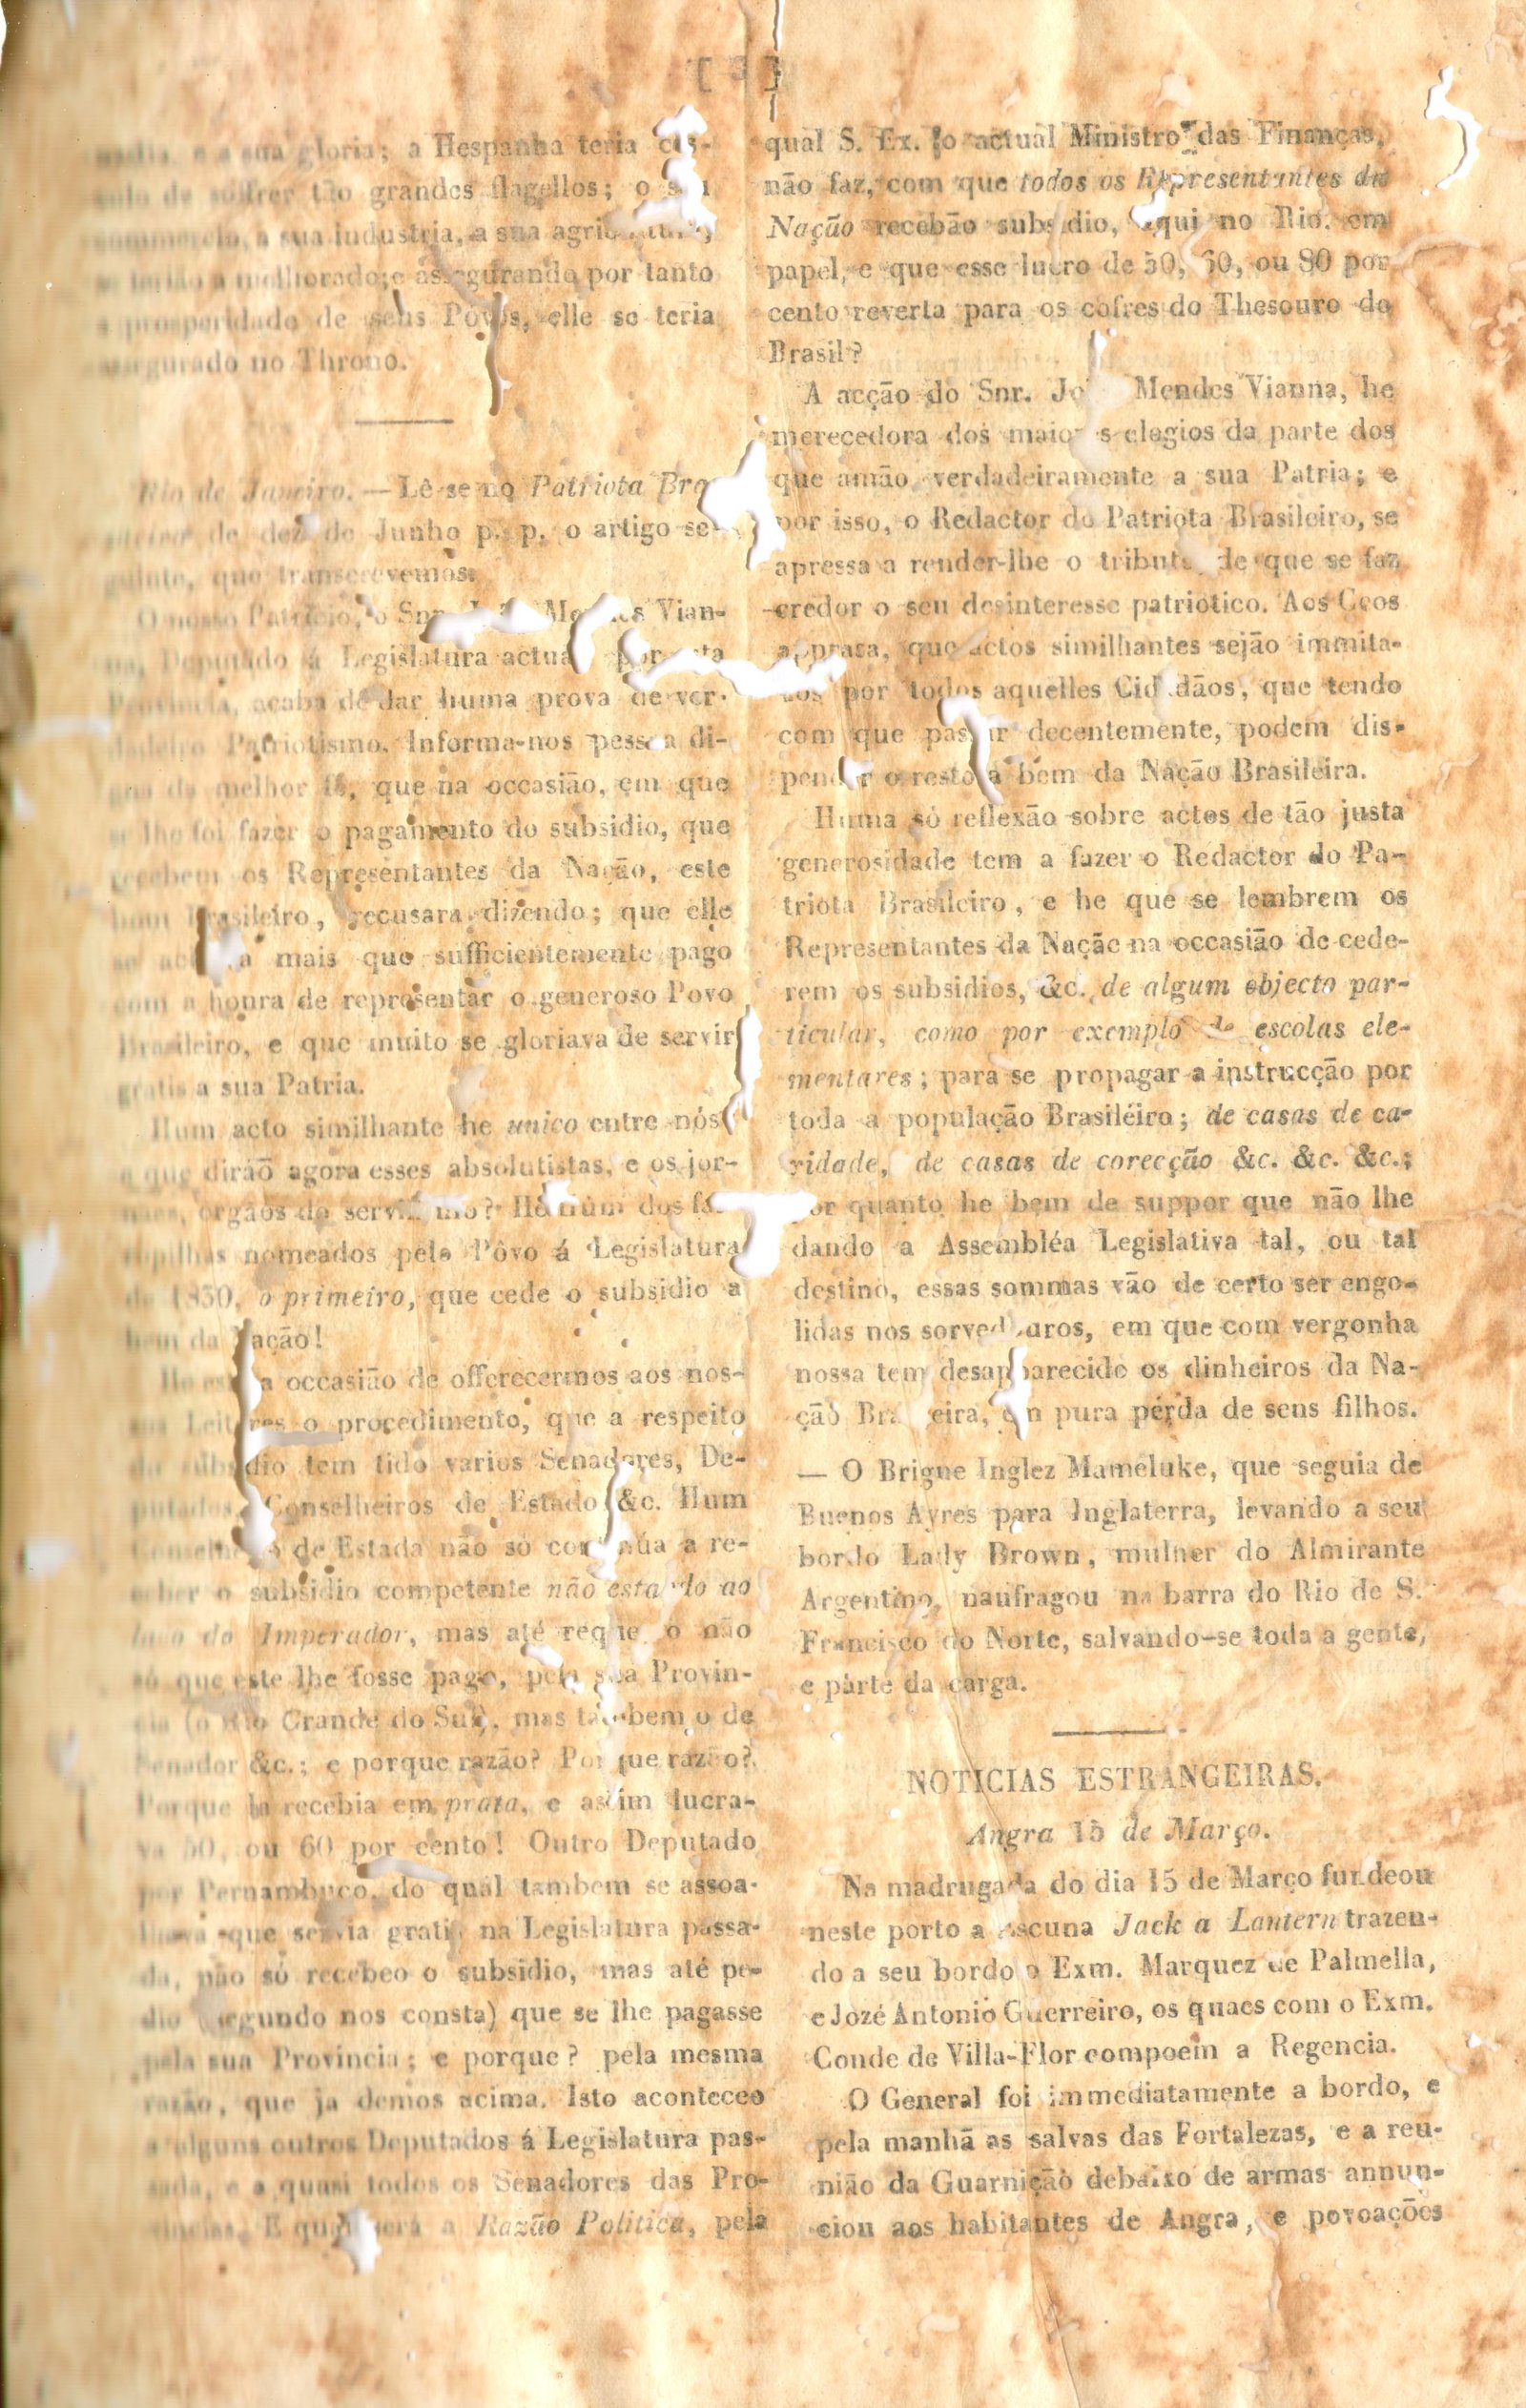 [ 3 ]
a sua gloria; a Hespanha teria ces-
de soffrer tão grandes flagellos; o seu
a sua industria, a sua agricultura,
melhorado; e assegurando por tanto
prosperidade de seus Povos, elle se teria
segurado no Throno.
Rio de Janeiro. — Lê-se no Patriota Bra
de dez de Junho p. p. o artigo se-
guinte, que transcrevemos.
O nosso Patricio, o Snr. Mendes Vian-
na, Deputado á Legislatura actual por esta
Provincia, acaba de dar huma prova de ver-
dadeiro Patriotismo. Informa-nos pessoa di-
gna da melhor fé, que na occasião, em que
se lhe foi fazer o pagamento do subsidio, que
recebem os Representantes da Nação, este
bom Brasileiro, recusara dizendo; que elle
se achava mais que sufficientemente pago
com a honra de representar o generoso Povo
Brasileiro, e que muito se gloriava de servir
gratis a sua Patria.
Hum acto similhante he unico entre nós
o que dirão agora esses absolutistas, e os jor-
naes, orgãos do servilismo? He hum dos fa-
rropilhas nomeados pelo Pôvo á Legislatura
de 1830, o primeiro, que cede o subsidio a
bem da Nação!
He esta a occasião de offerecermos aos nos-
sos Leitores o procedimento, que a respeito
do subsidio tem tido varios Senadores, De-
putados, Conselheiros de Estado &c. Hum
Conselheiro de Estada não só continúa a re-
ceber o subsidio competente não estando ao
lado do Imperador, mas até requereo não
só que este lhe fosse pago, pela sua Provin-
cia (o Rio Grande do Sul), mas tambem o de
Senador &c.; e porque razão? Porque razão?
Porque la recebia em prata, e assim lucra-
va 50, ou 60 por cento! Outro Deputado
por Pernambuco, do qual tambem se assoa-
lhava que servia gratis na Legislatura passa-
da, não só recebeo o subsidio, mas até pe-
dio (segundo nos consta) que se lhe pagasse
pela sua Provincia; e porque? pela mesma
razão, que ja demos acima. Isto aconteceo
a alguns outros Deputados á Legislatura pas-
sada, e a quasi todos os Senadores das Pro-
vincias. E qual será a Razão Politica, pela
qual S. Ex. o actual Ministro das Finanças,
não faz, com que todos os Representantes da
Nação recebão subsidio, aqui no Rio, em
papel, e que esse lucro de 50, 60, ou 80 por
cento reverta para os cofres do Thesouro do
Brasil?
A acção do Snr. Mendes Vianna, he
merecedora dos maiores elogios da parte dos
que amão verdadeiramente a sua Patria; e
por isso, o Redactor do Patriota Brasileiro, se
apressa a render-lhe o tributo de que se faz
credor o seu desinteresse patriotico. Aos Ceos
apraza, que actos similhantes sejão immita-
dos por todos aquelles Cidadãos, que tendo
com que passar decentemente, podem dis-
pender o resto a bem da Nação Brasileira.
Huma só reflexão sobre actos de tão justa
generosidade tem a fazer o Redactor do Pa-
triota Brasileiro, e he que se lembrem os
Representantes da Nação na occasião de cede-
rem os subsidios, &c. de algum objecto par-
ticular, como por exemplo de escolas ele-
mentares; para se propagar a instrucção por
toda a população Brasileira; de casas de ca-
ridade, de casas de corecção &c. &c. &c.;
por quanto he bem de suppor que não lhe
dando a Assembléa Legislativa tal, ou tal
destino, essas sommas vão de certo ser engo-
lidas nos sorvedouros, em que com vergonha
nossa tem desapparecido os dinheiros da Na-
ção Brasileira, em pura pérda de seus filhos.
— O Brigue Inglez Mameluke, que seguia de
Buenos Ayres para Inglaterra, levando a seu
bordo Lady Brown, mulher do Almirante
Argentino, naufragou na barra do Rio de S.
Francisco do Norte, salvando-se toda a gente,
e parte da carga.
NOTICIAS ESTRANGEIRAS.
Angra 15 de Março.
Na madrugada do dia 15 de Março fundeou
neste porto a escuna Jack a Lantern trazen-
do a seu bordo o Exm. Marquez de Palmella,
e Jozé Antonio Guerreiro, os quaes com o Exm.
Conde de Villa-Flor compoem a Regencia.
O General foi immediatamente a bordo, e
pela manhã as salvas das Fortalezas, e a reu-
nião da Guarnição debaixo de armas annun-
ciou aos habitantes de Angra, e povoações